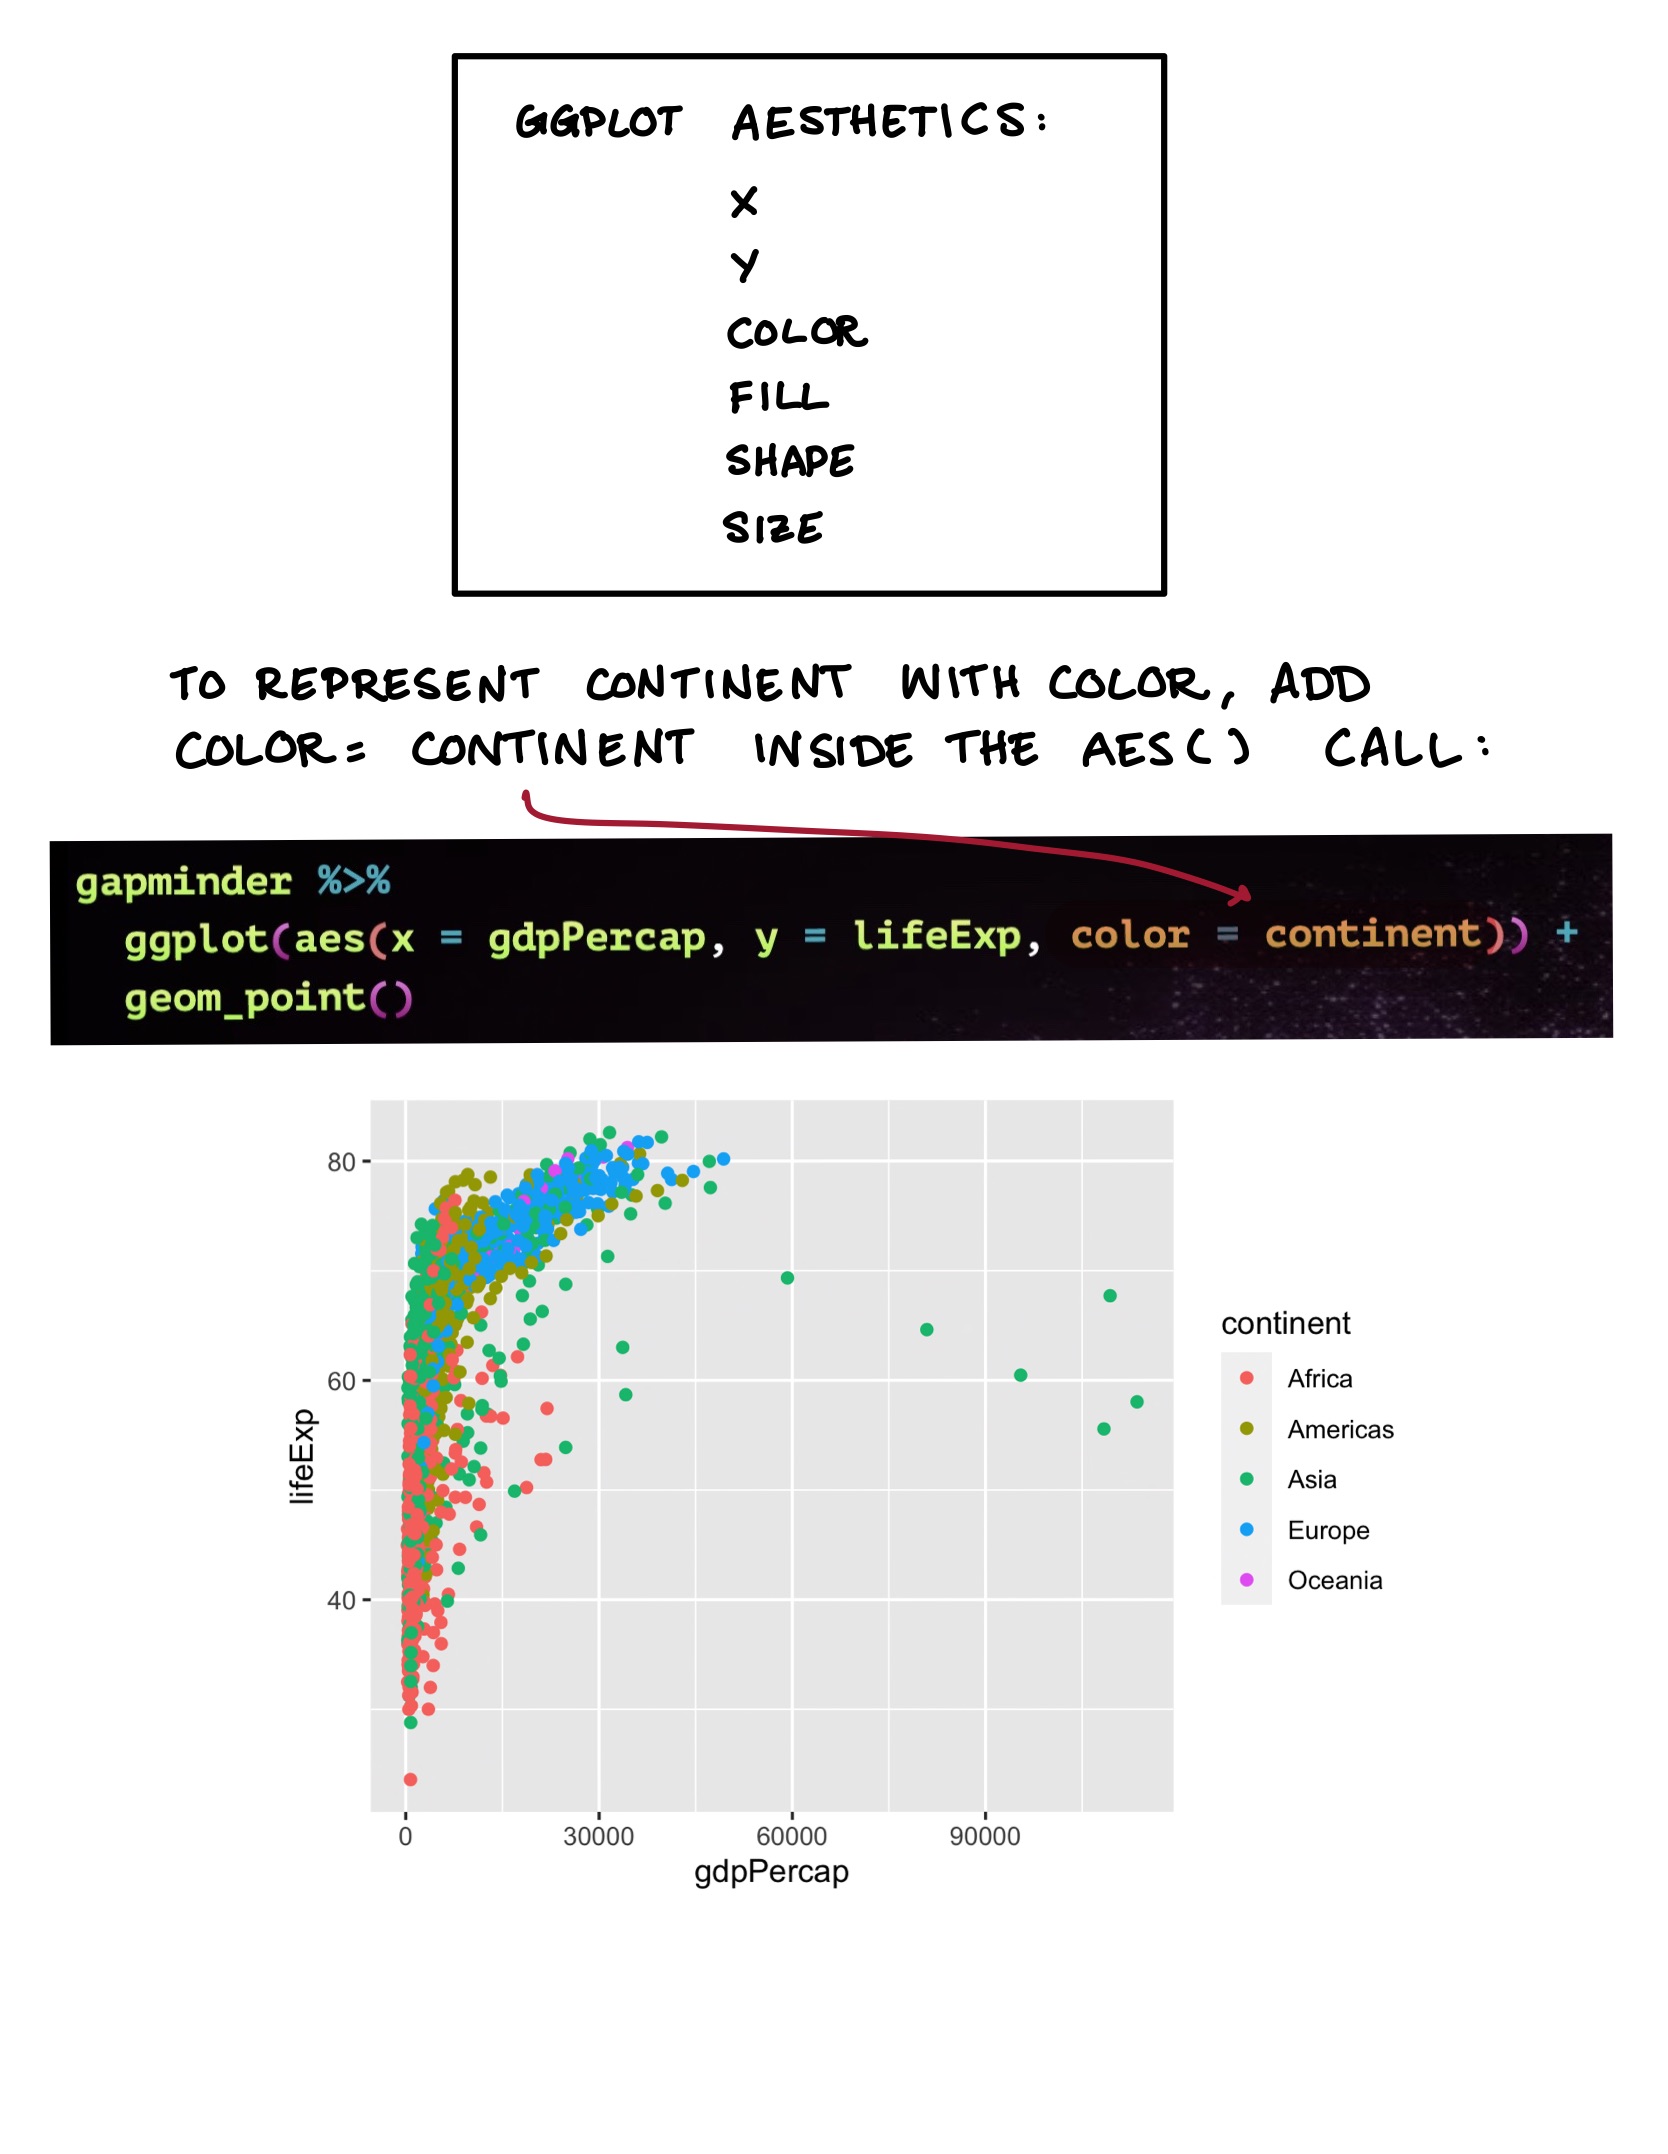 GGPLOT AESTHETICS:
X
Y
COLOR
FILL
SHAPE
SIZE
TO REPRESENT CONTINENT WITH COLOR, ADD
COLOR= CONTINENT INSIDE THE AES() CALL:
gapminder %>%
ggplot(aes(x = gdpPercap, y = lifeExp, color = continent)) +
geom_point()
80
60
40
lifeExp
0 30000 60000 90000
gdpPercap
continent
Africa
Americas
Asia
Europe
Oceania